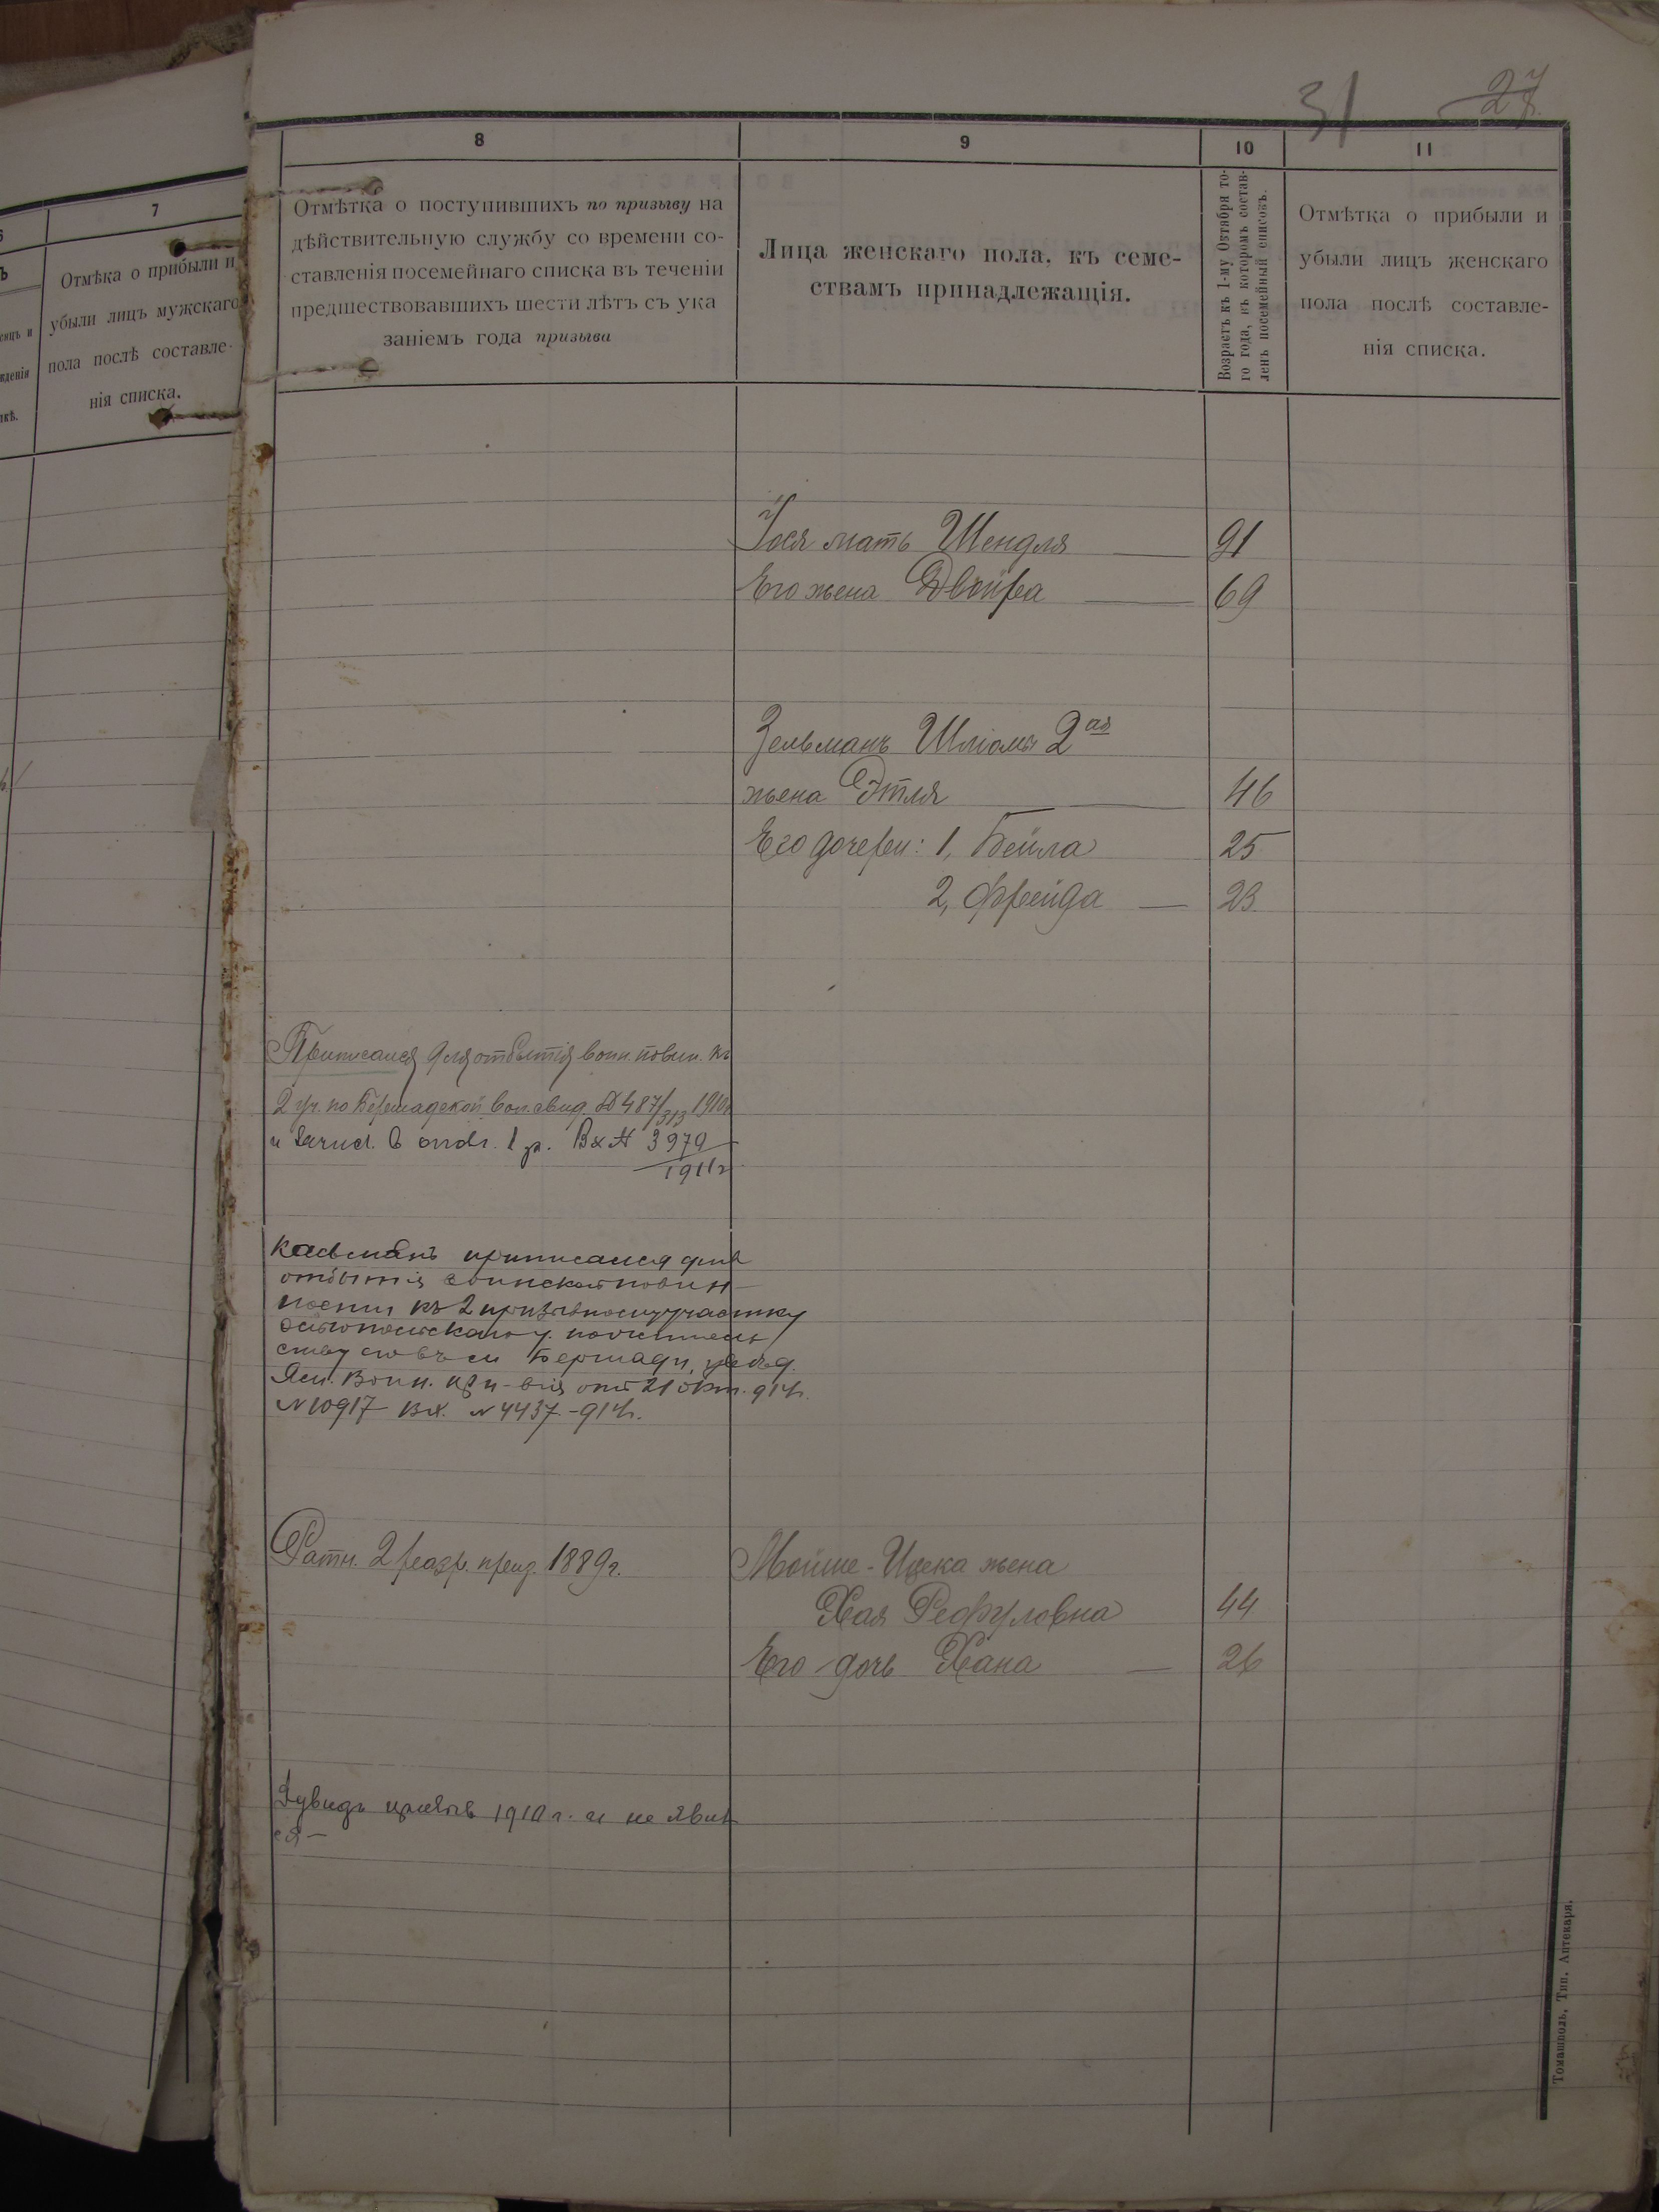 31 27
6
7
Отмѣка о прибыли и
убыли лицъ мужскаго
пола послѣ составле-
нія списка.
8
9
10
11
Отмѣтка о поступившихъ по призыву на
дѣйствительную службу со времени со-
ставленія посемейнаго списка въ теченіи
предшествовавшихъ шести лѣтъ съ ука
заніемъ года призыва
Лица женскаго пола, къ семе-
ствамъ принадлежащія.
Возрастъ къ 1-му Октября то-
го года, въ которомъ состав-
ленъ посемейный списокъ.
Отмѣтка о прибыли и
убыли лицъ женскаго
пола послѣ составле-
нія списка.
мать Шендля 91
Его жена Двойра 69
Зельманъ Шліомы 2ая
жена Этля 46
Его дочери: 1, Бейла 25
2, Фрейда 23
Приписался для отбытія воин. повин. къ
2 уч. по Бершадской вол. свид. № 487/313 1910г
и зачисл. в 1 р. Вх № 3979
1911г
приписался для
отбытія воинской повин-
ности къ 2 призывному участку
Бершади,
Воин. при-вія отъ 21 окт. 914г.
№ 10917 Вх. № 4437-914г.
Ратн. 2 разр. приз. 1889г.
Мойше-Ицека жена
Хая Рефуловна 44
Его дочь Хана 26
Дувидъ призывъ 1910 г. и не явил
ся-
Томашполь, Тип. Аптекаря.